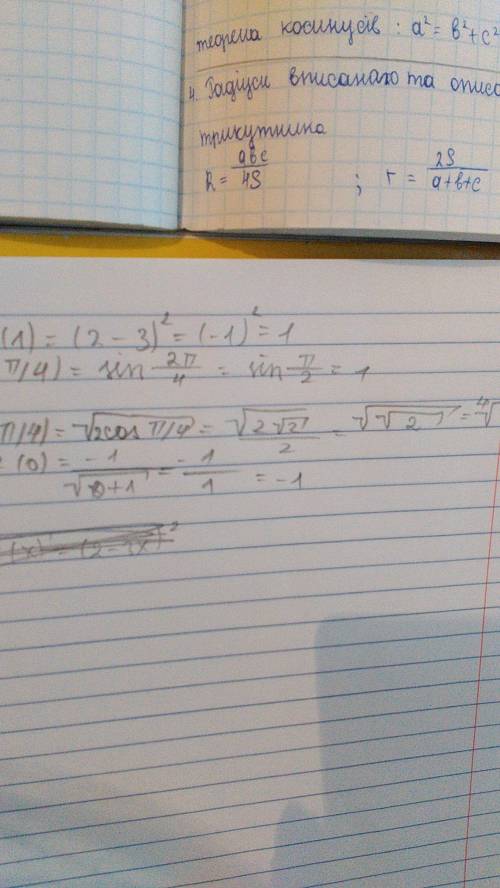 теорема косинусів : a² = b² + c²
4. Радіуси вписаного та описа
трикутника
R = abc/4S ; r = 2S/a+b+c
(1) = (2 - 3)² = (-1)² = 1
π/4) = sin 2π/4 = sin π/2 = 1
π/4) = √2cos π/4 = √2√2/2 = √√2 = ⁴√
(0) = -1/√0+1 = -1/1 = -1
(x) = (2-3x)²